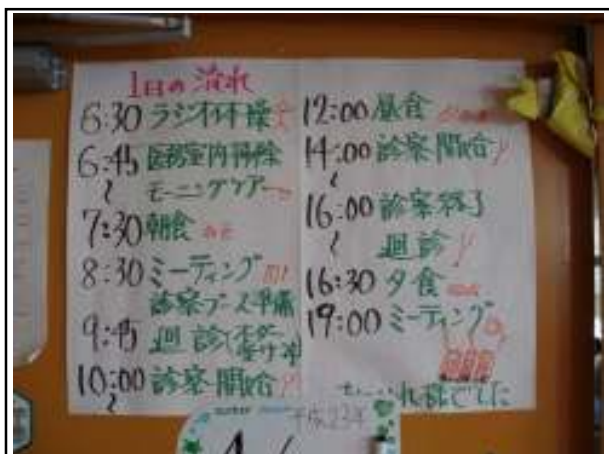 1日の流れ
6:30 ラジオ体操
6:45 医務室内掃除
〜 モーニングケアー
7:30 朝食
8:30 ミーティング
診察ブース準備
9:45 廻診
10:00 診察開始
〜
12:00 昼食
14:00 診察開始
〜
16:00 診察終了
〜 廻診
16:30 夕食
19:00 ミーティング
れ様でした
平成23年